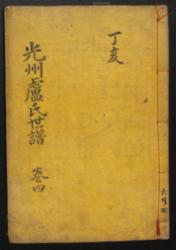 丁亥
光州盧氏世譜
卷四